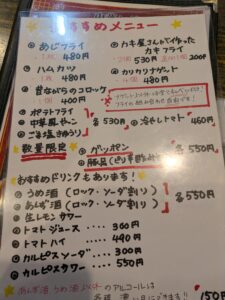 おすすめメニュー
あじフライ
1枚 480円
ハムカツ
1枚 480円
昔ながらのコロッケ
1個 400円
ポテトフライ
中華風やっこ
ごま塩きゅうり
各 530円
カキ屋さんちで作った
カキフライ
2個 530円 300円
カリカリナゲット
480円
冷やしトマト
460円
数量限定
ゲッポン
各 550円
おすすめドリンクもあります!
うめ酒(ロック・ソーダ割り)
あんず酒(ロック・ソーダ割り)
生レモンサワー
各 550円
トマトジュース … 360円
トマトハイ … 490円
カルピスソーダ … 300円
カルピスサワー … 550円
あんず酒 うめ酒 以外の アルコールは